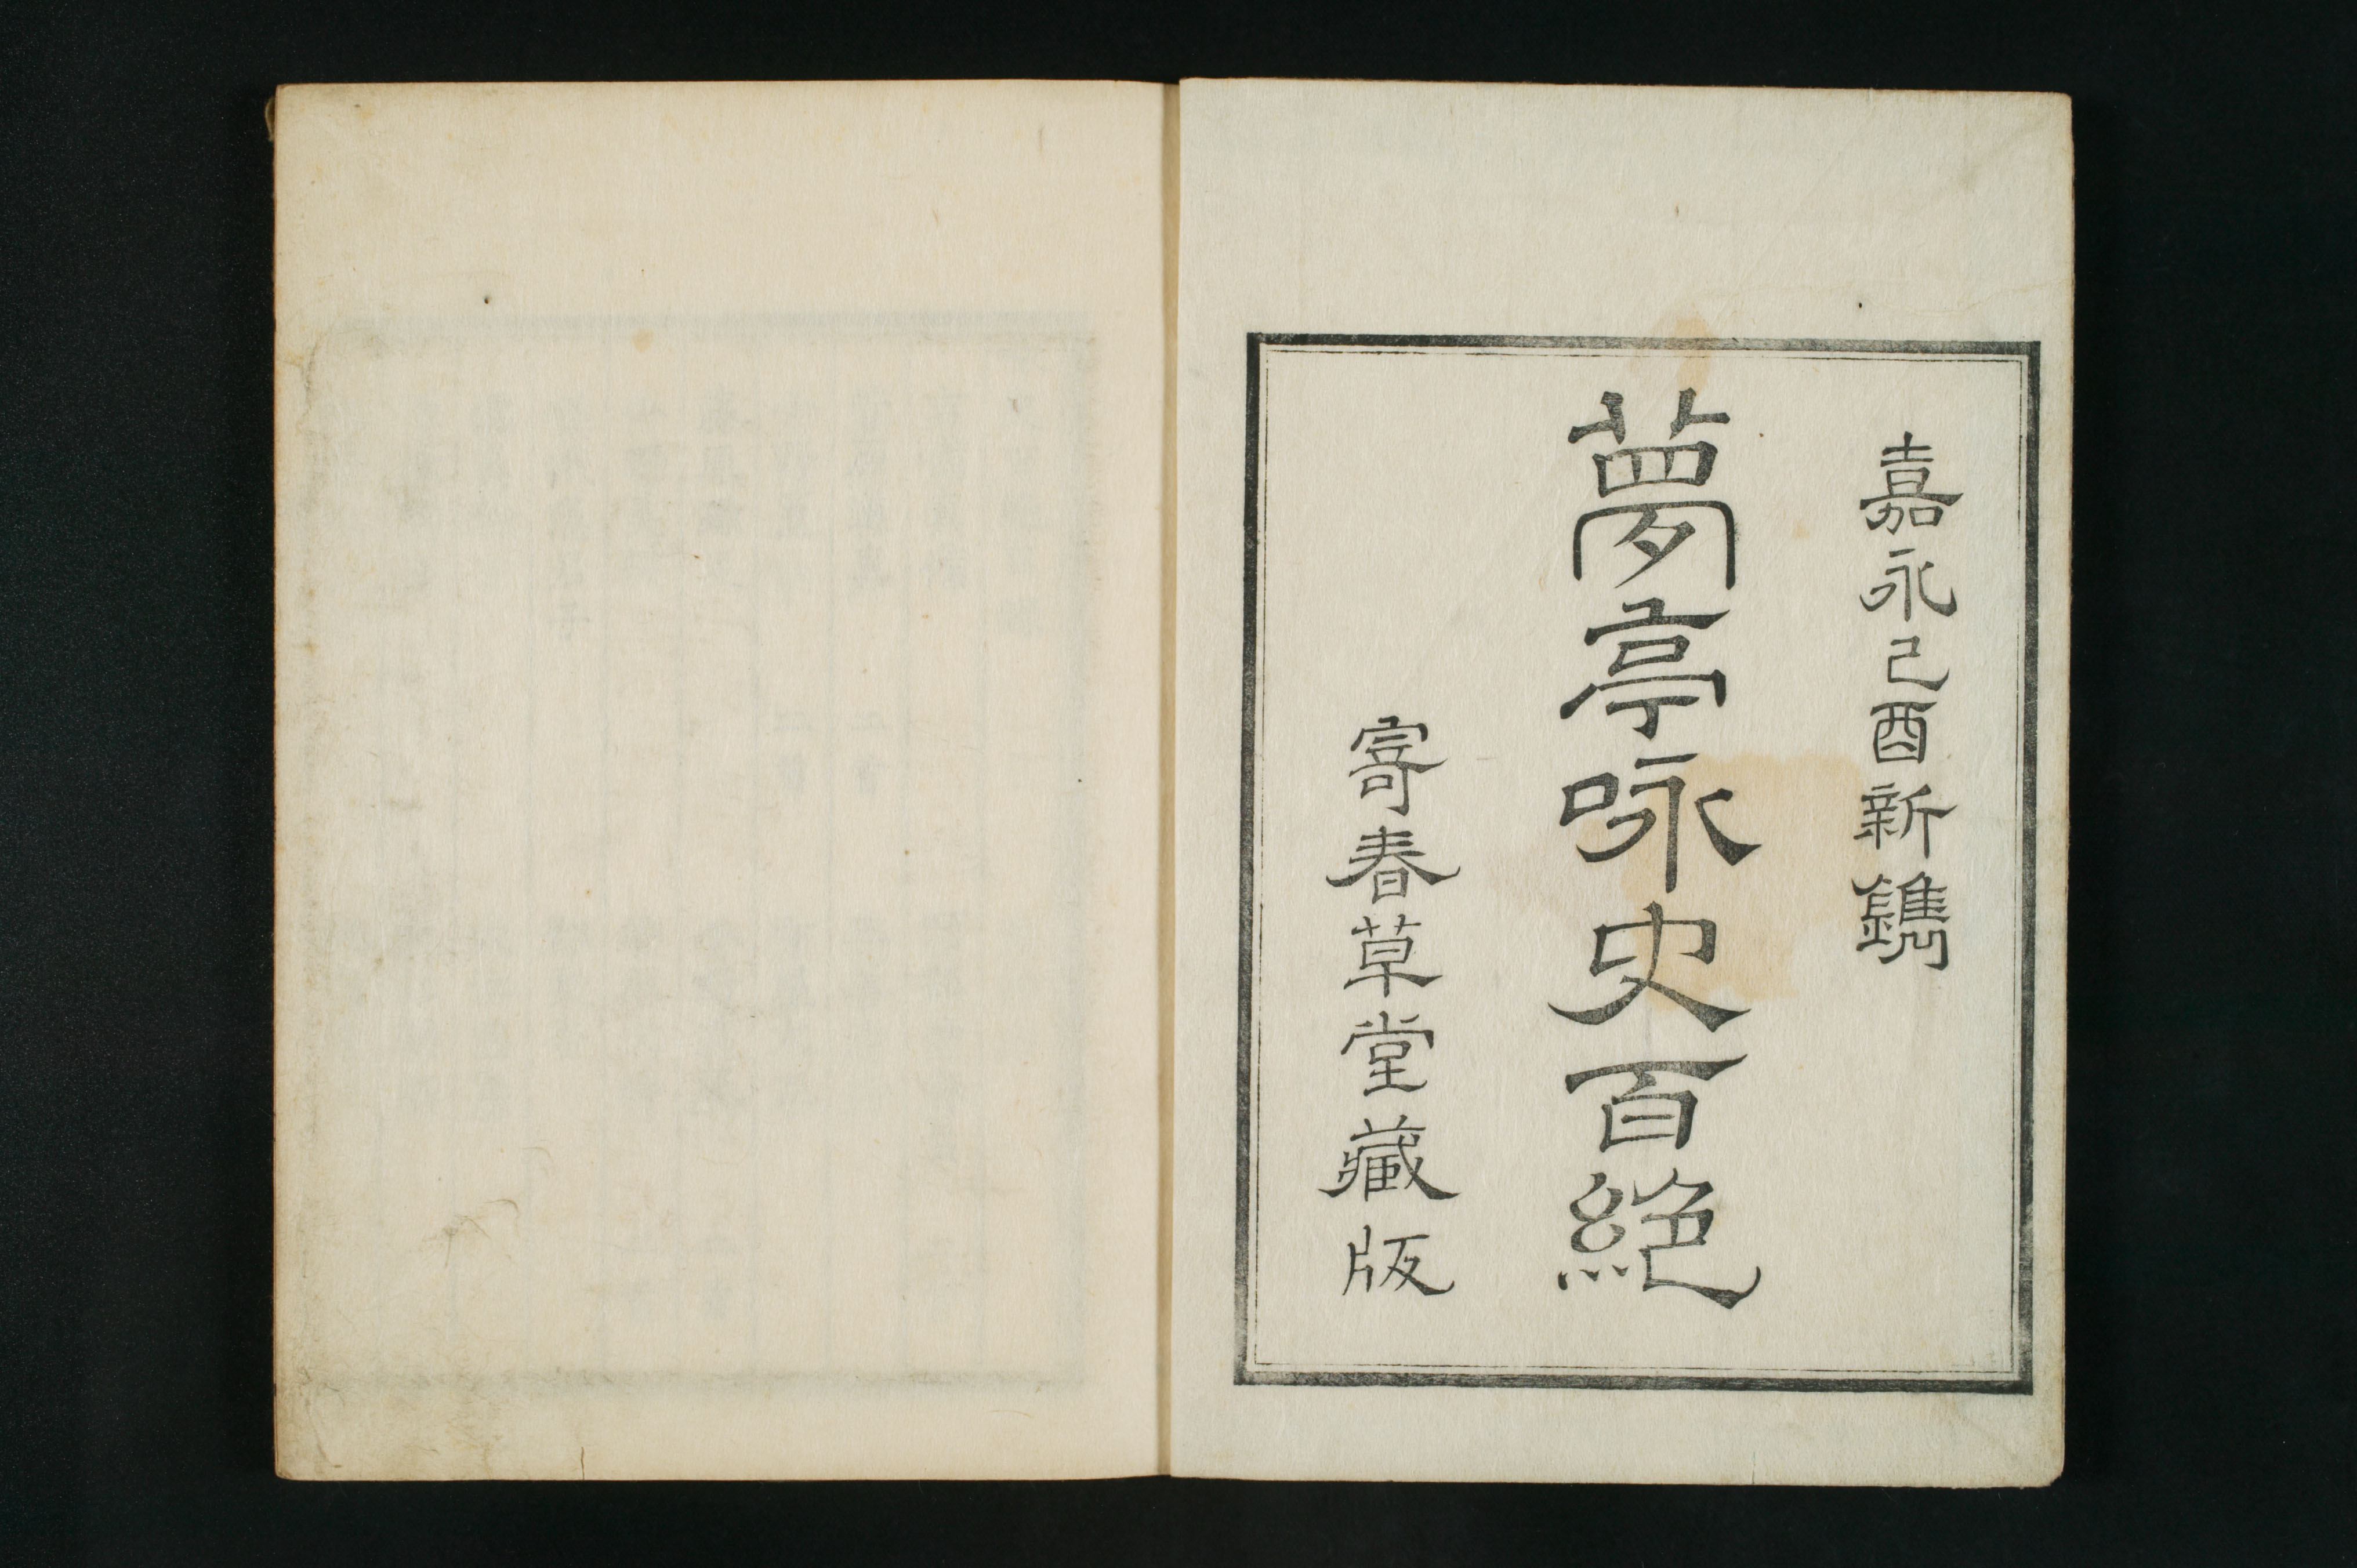 嘉永己酉新鐫
夢亭咏史百絶
寄春草堂藏版